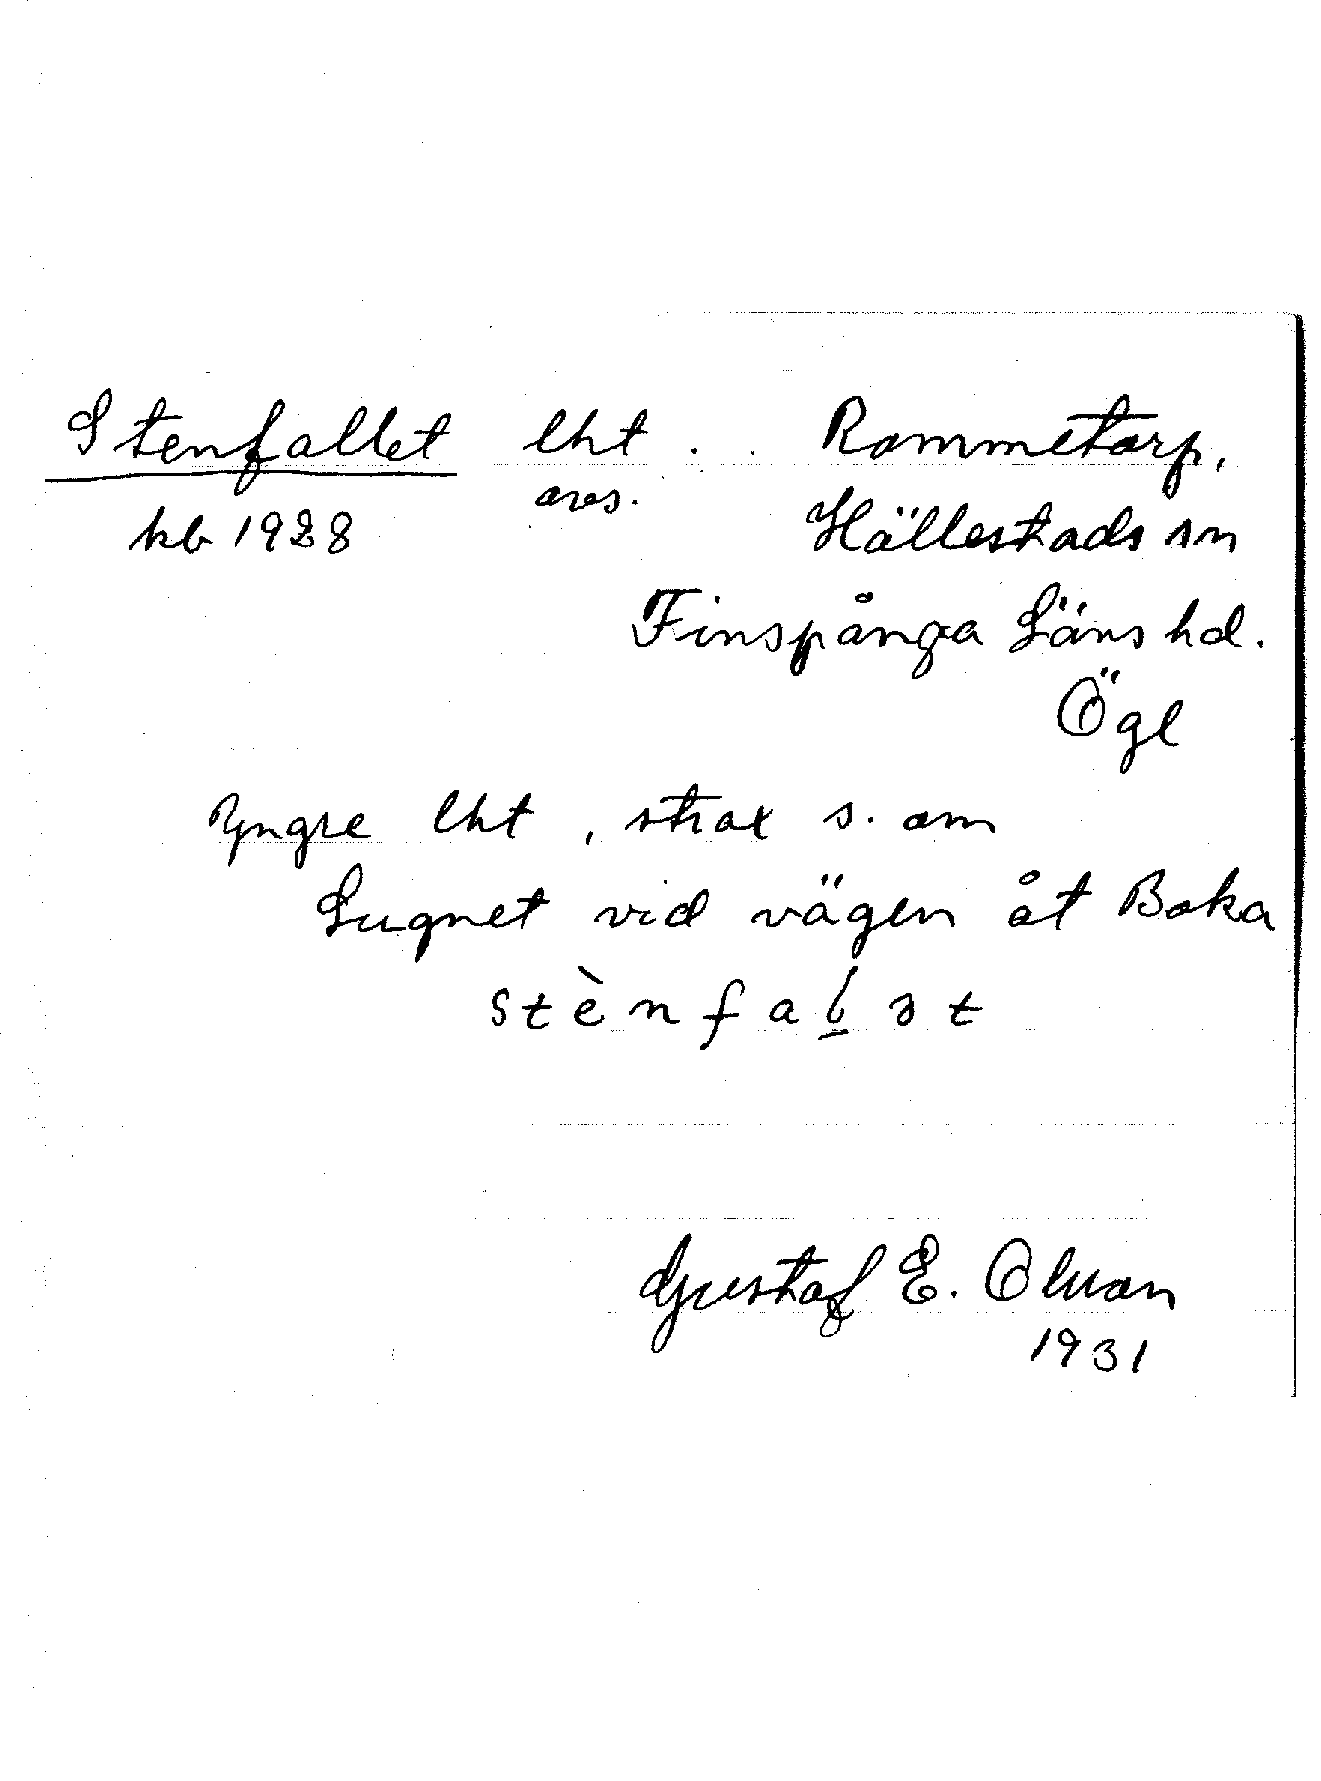 Stenfallet lht. Rommetorp,
kb 1928 avs. Hällestads sn
Finspånga Läns hd.
Ögl
Yngre lht, strax s. om
Lugnet vid vägen åt Boka
stènfalət
Gustaf E. Olsson
1931